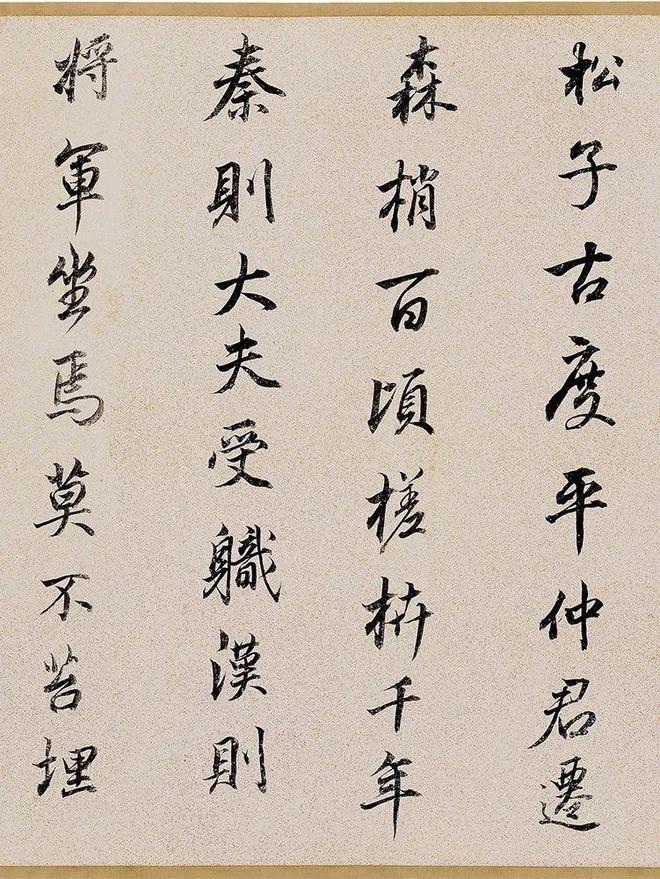 松子古度平仲君遷
森梢百頃槎枿千年
秦則大夫受職漢則
將軍坐焉莫不苔埋